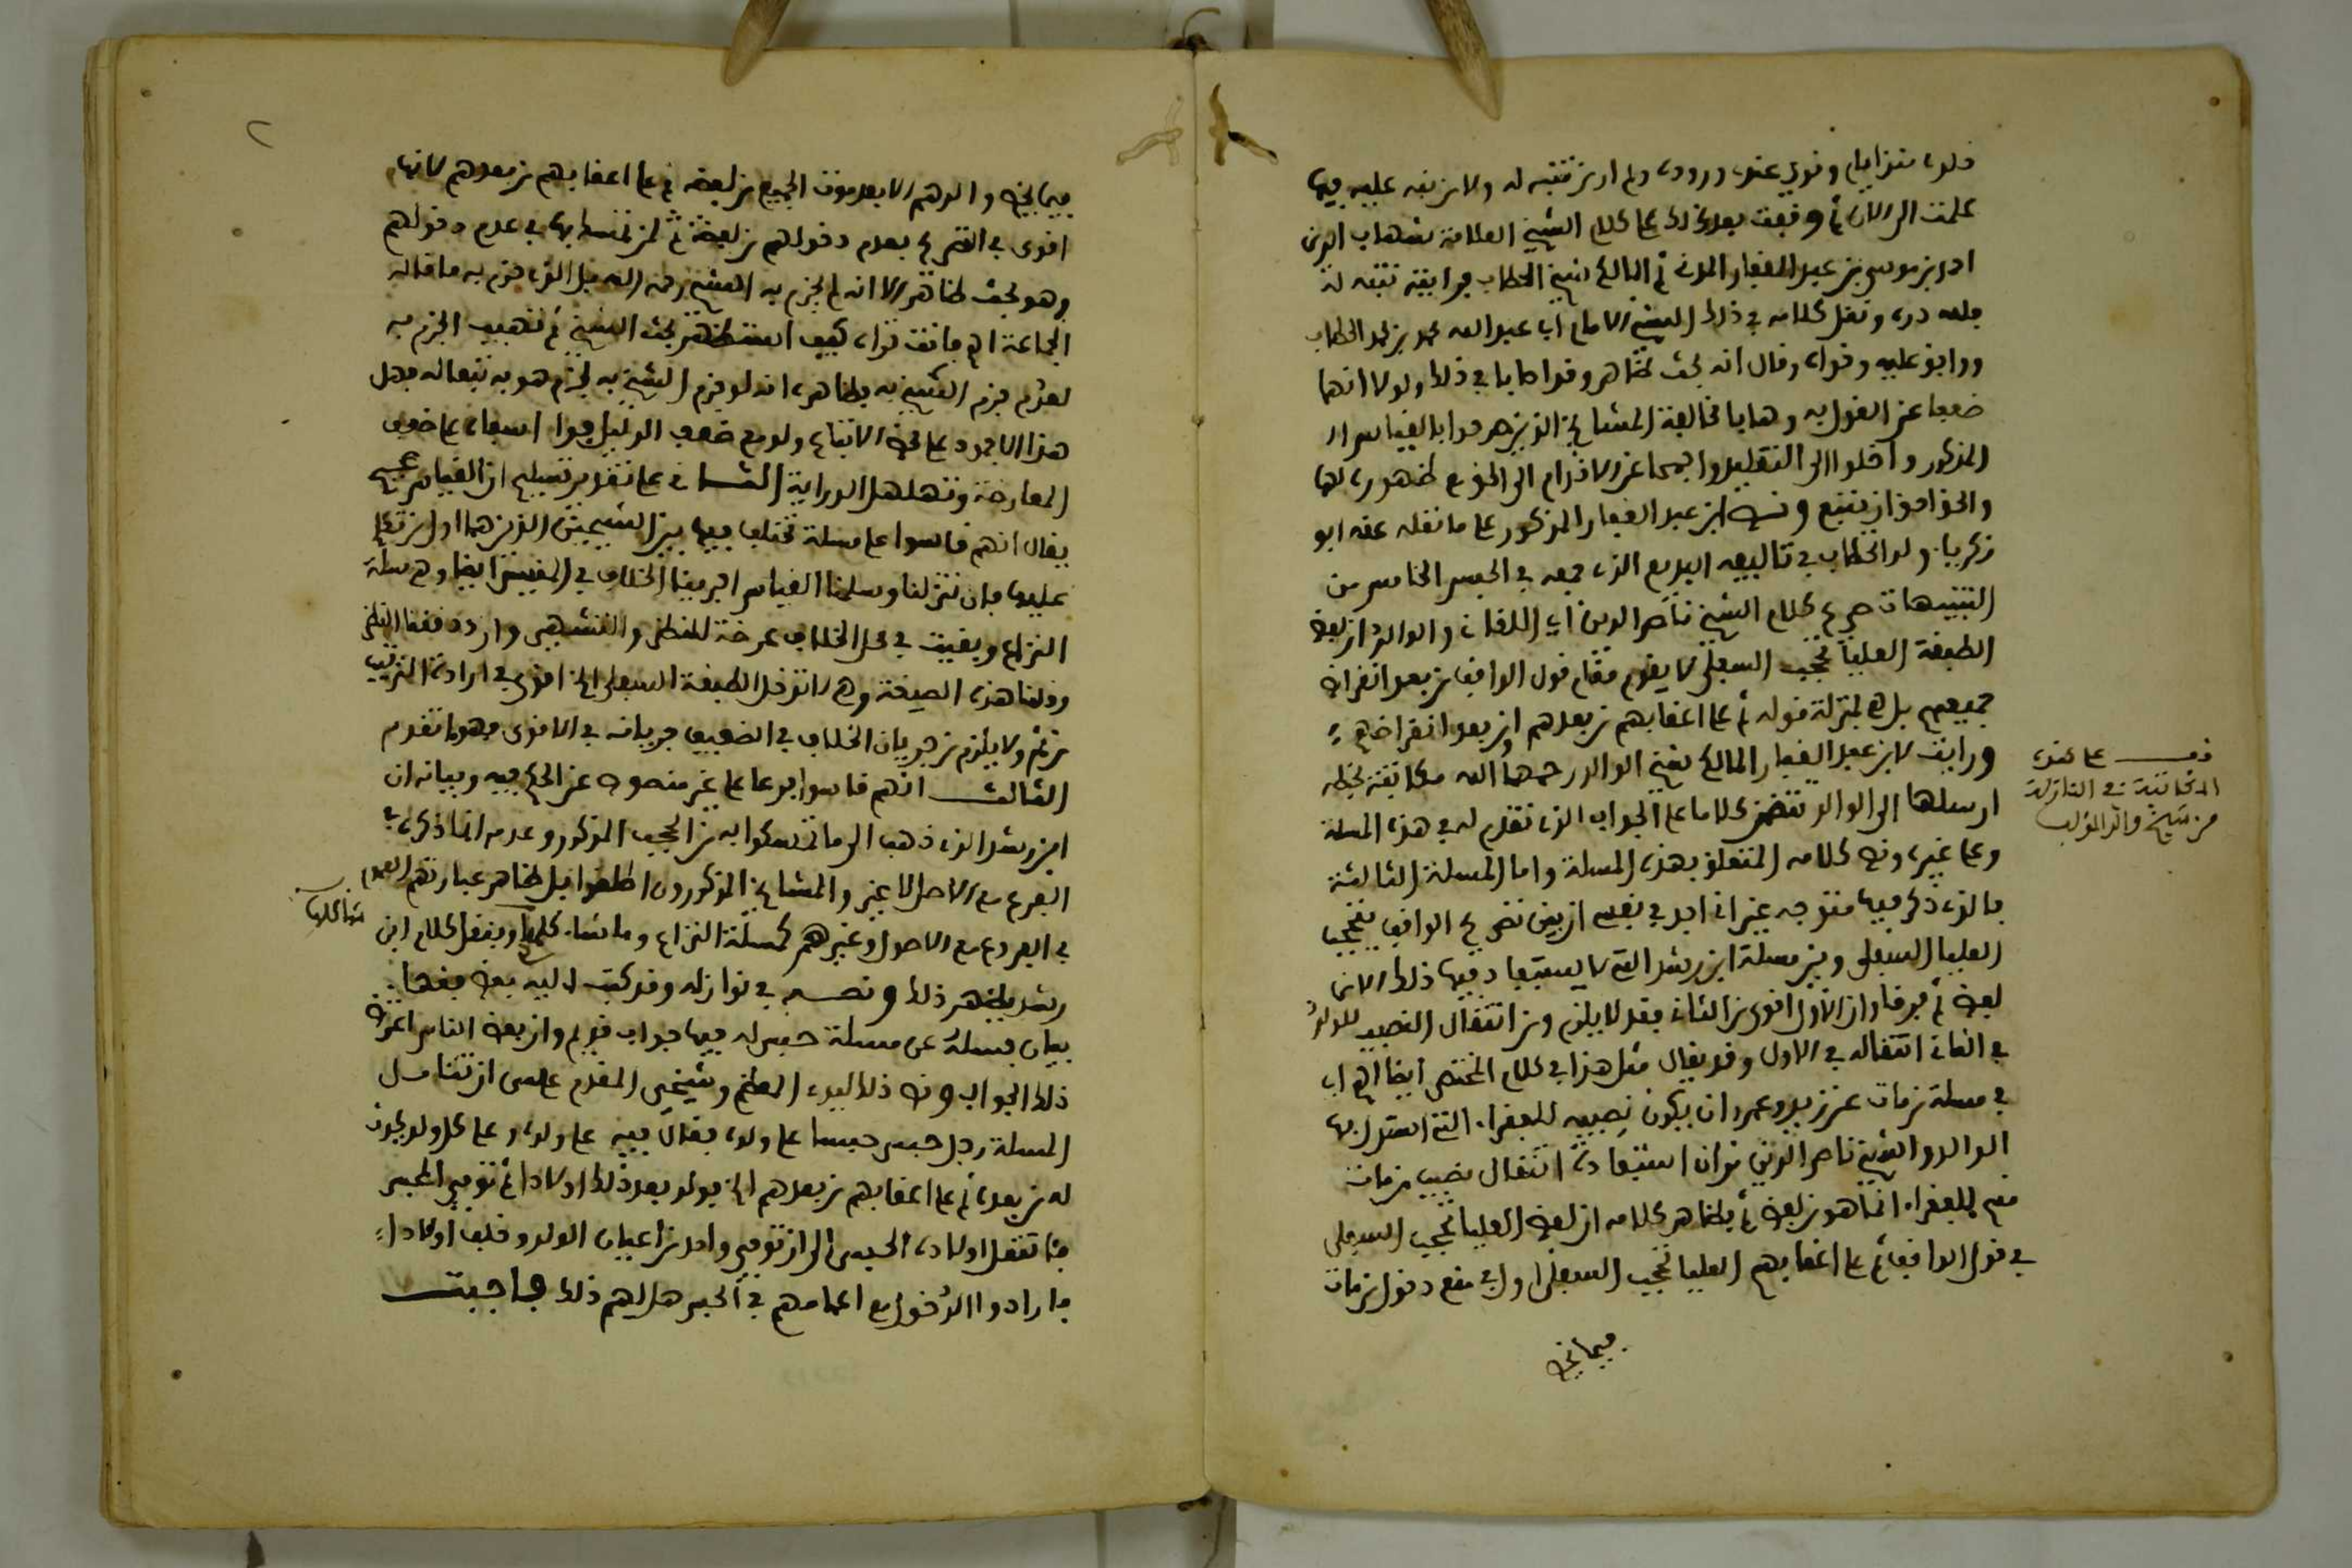 خلدى منذ ايام وقوي عندى وروده ولم ار من تنبه له ولا من نبه عليه فيما
علمت الى الان ثم وقفت بعد ذلك على كلام الشيخ العلامة شهاب الدين
احمد بن موسى بن عبد الغفار المدنى ثم المالكى شيخ الحطاب فرايته تنبه له
فلله دره ونقل كلامه في ذلك الشيخ الامام ابى عبد الله محمد بن محمد الحطاب
ووافق عليه وقواه وقال انه بحث ظاهر وقوا كابا في ذلك ولولا انهما
ضعفا عن القول به وهابا مخالفة المشايخ الذين صرحوا بالقياس
المذكور واخلدا الى التقليد واحجما عن الاقدام الى الجزم لظهوره لهما
والحق احق ان يتبع ونص ابن عبد الغفار المذكور على ما نقله عنه ابو
زكرياء ولد الحطاب في تاليفه البديع الذى جمعه في الحبس الخامس من
التنبيهات صرح كلام الشيخ ناصر الدين اي اللقانى والوالد ان لفظ
الطبقة العليا تحجب السفلى لا يقوم مقام قول الواقف من بعد انقراض
جميعهم بل هي بمنزلة قوله ثم على اعقابهم من بعدهم او من بعد انقراضهم
ورايت لابن عبد الغفار المالكى شيخ الوالد رحمهما الله مكاتبة بخطه
ارسلها الى الوالد تتضمن كلاما على الجواب الذى تقدم له في هذه المسلة
وعلى غيره ونص كلامه المتعلق بهذه المسلة واما المسلة الثالثة
فالذى ذكر فيها متوجه غير انى اجد في نفسى ان بين تصريح الواقف بتحجب
العليا السفلى وبين مسلة ابن رشد التى لا يستفاد فيها ذلك الا من
لفظ ثم فرقا وان الاول اقوى من الثانى فقد لا يلزم من انتقال النصيب للولد
في الثانى انتقاله في الاول وقد يقال مثل هذا في كلام المختصر ايضا اي
في مسلة من مات عن زيد وعمرو ان يكون نصيبه للفقراء التى استدل بها
الوالد والشيخ ناصر الدين فان استفادة انتقال نصيب من مات
منهم للفقراء انما هو من لفظ ثم بظاهر كلامه ان لفظ العليا تحجب السفلى
في قول الواقف ثم على اعقابهم العليا تحجب السفلى اولى في منع دخول من مات
فيما يخص
قف على هذه
المكاتبة في النازلة
من شيخ والد المؤلف
فيما يخص والدهم الا بعد موت الجميع من لفظ ثم على اعقابهم من بعدهم لانها
اقوى في التصريح بعدم دخولهم من لفظة ثم لمن تمسك بها في عدم دخولهم
وهو بحث ظاهر الا انه لم يجزم به الشيخ رحمه الله فلذا جزم به ما قاله
الجماعة اهـ فانت تراه كيف استظهر بحث الشيخ ثم تهيب الجزم به
لعدم جزم الشيخ به وظاهره انه لو جزم الشيخ به لجزم هو به تبعا له فهل
هذا الا جمود على محض الاتباع ولو مع ضعف الدليل
المعارضة وتهلهل الدراية الثانى على تقدير تسليم ان القياس صحيح
يقال انهم قاسوا على مسلة مختلف فيها بين الشيخين الذين هما
عليها فان تنزلنا وسلمنا القياس اجرينا الخلاف في المقيس ايضا وهي مسلة
النزاع وبقيت في محل الخلاف عرضة للنظر والتشهير وان دققنا النظر
وقلنا هذه الصيغة وهي لا تدخل الطبقة السفلى الخ اقوى في ارادة الترتيب
من ثم ولا يلزم من جريان الخلاف في الضعيف جريانه في الاقوى فهو ما تقدم
الثالث انهم قاسوا فرعا على غير منصوص عن الحكم فيه وبيانه ان
ابن رشد الذى ذهب الى ما تمسكوا به من الحجب المذكور وعدمه انما ذكره في
الفرع مع الاصل لا غير والمشايخ المذكورون اطلقوا بل ظاهر عبارتهم العموم
في الفروع مع الاصول وغيرهم كمسلة النزاع وما شاكلها وبنقل كلام ابن
رشد يظهر ذلك ونصه في نوازله وقد كتب اليه بعض فقهاء
بيان بمسلة عن مسلة حبس له فيها جواب قديم وان بعض الناس اعترض
ذلك الجواب ونص ذلك لسيدى المعظم وشيخى المقدم عسى ان تتامل
المسلة رجل حبس حبسا على ولده فقال فيه على ولده وعلى كل ولد يحدث
له من بعده ثم على اعقابهم من بعدهم الخ فولد بعد ذلك اولادا ثم توفي المحبس
فاشتغل اولاده الحبس الى ان توفي واحد من اعيان الولد وخلف اولادا
فارادوا الدخول مع اعمامهم في الحبس هل لهم ذلك فاجبت
شاكلها